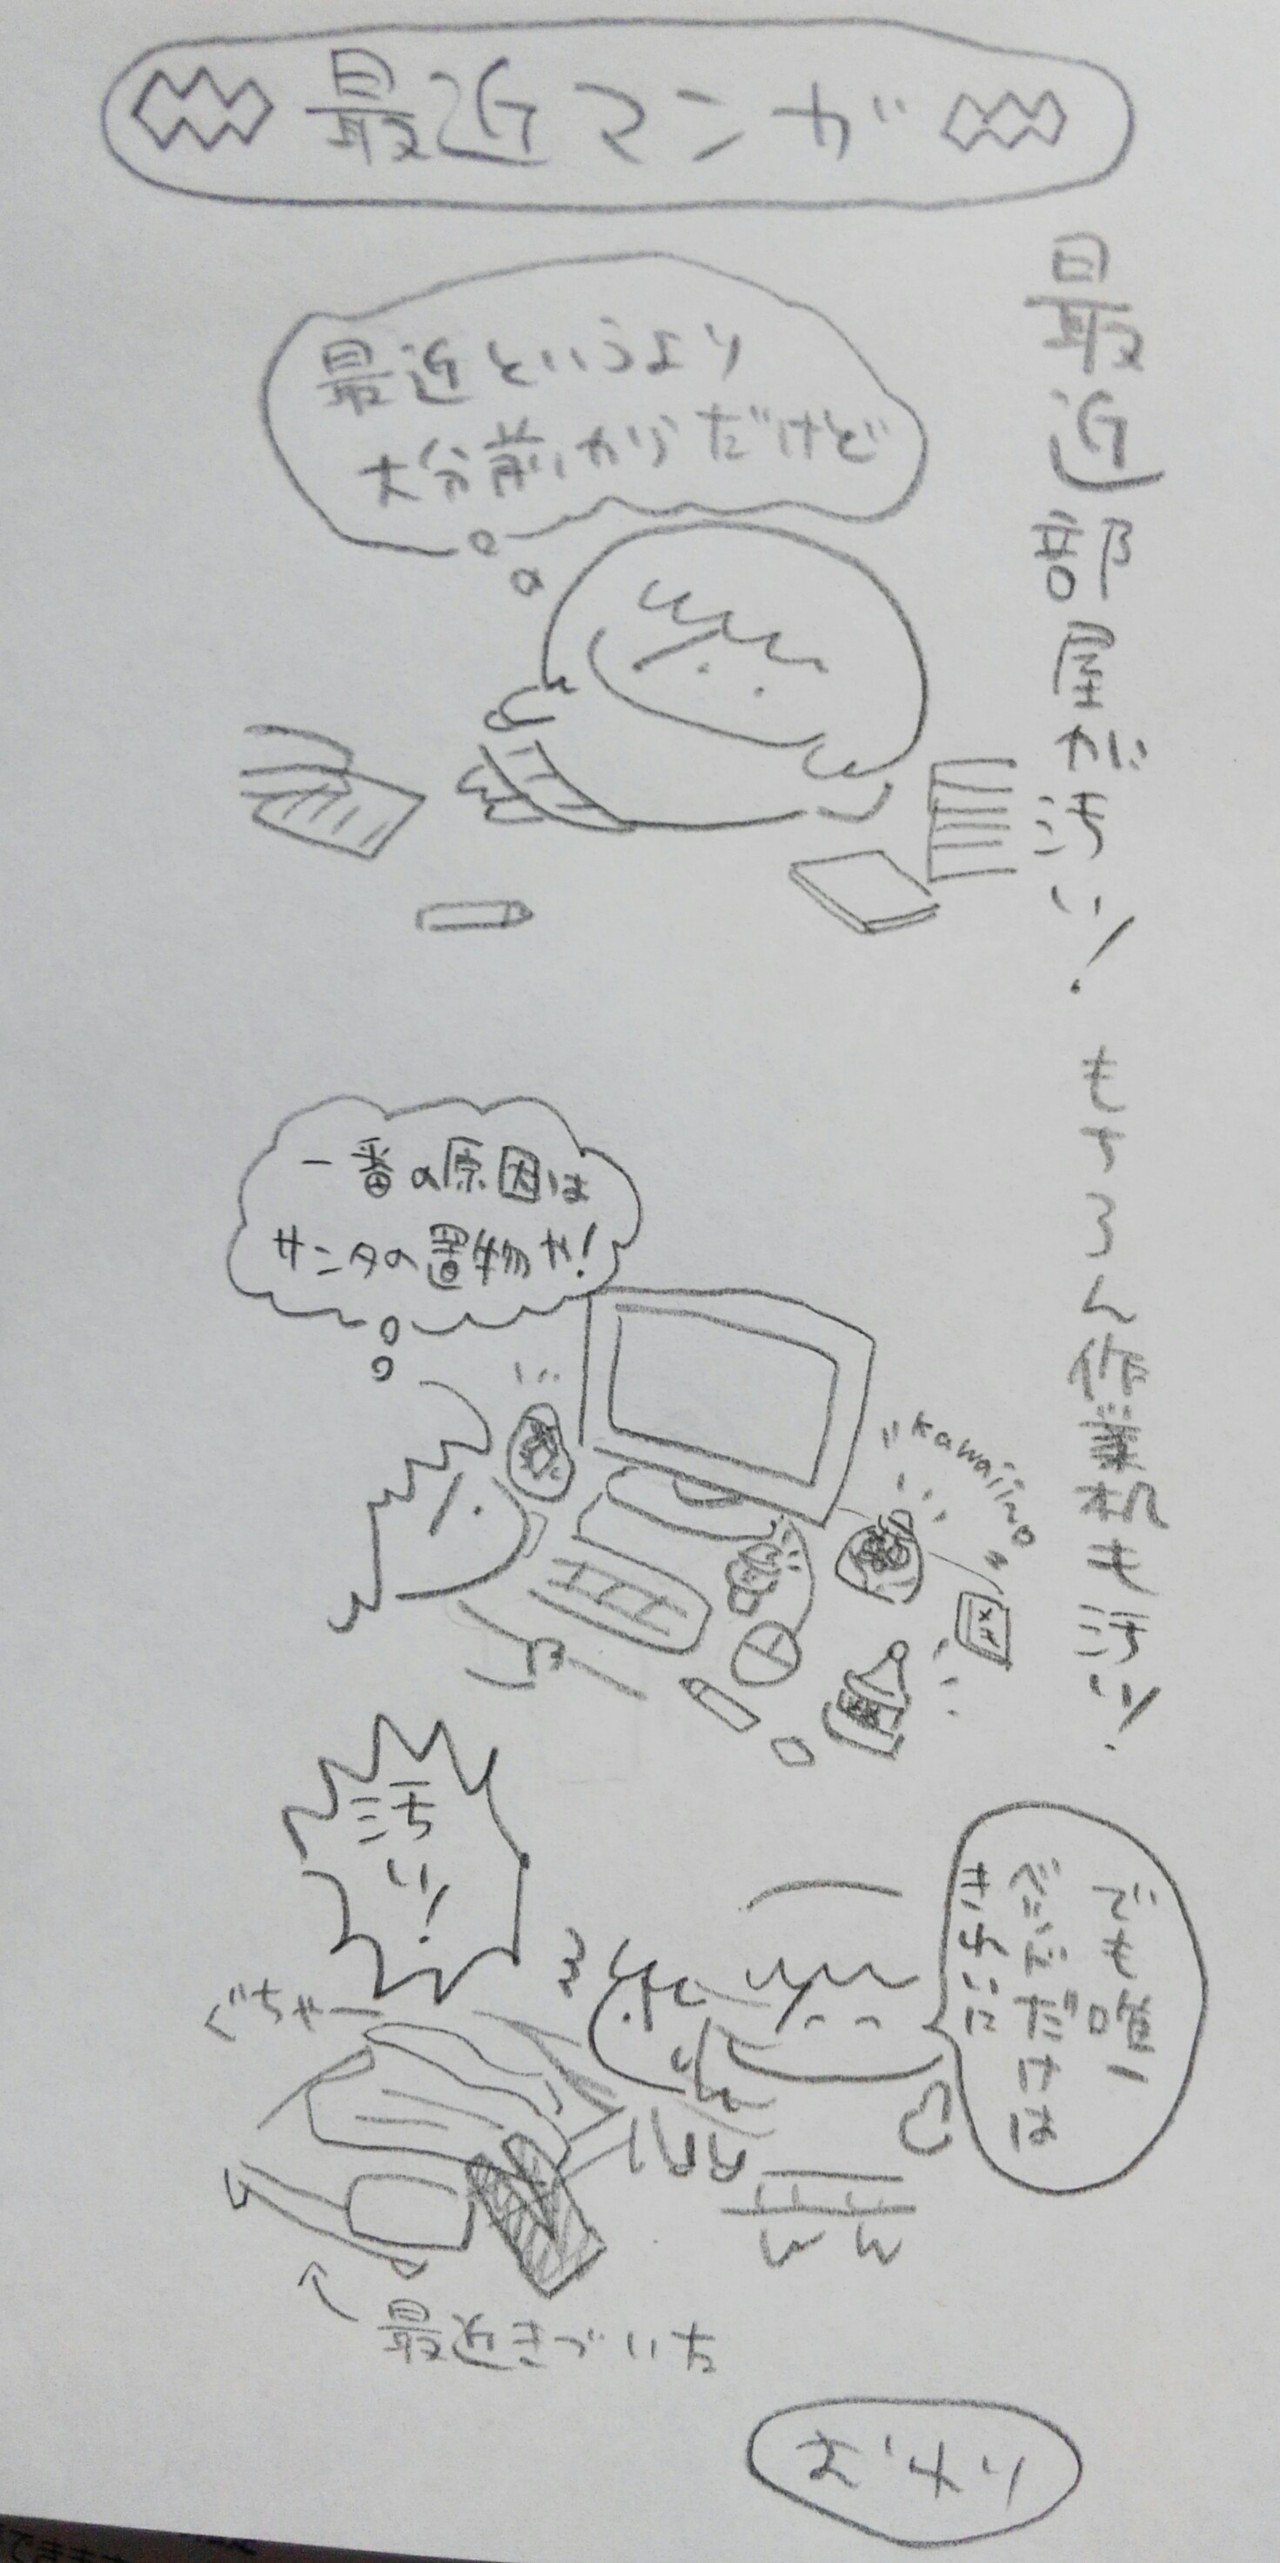 最近マンガ
最近部屋が汚い！もちろん作業机も汚い！
最近というより
大分前からだけど
一番の原因は
サンタの置物や！
kawaii
でも唯一
だけは
きれいに
汚い！
ぐちゃ
最近きづいた
おわり